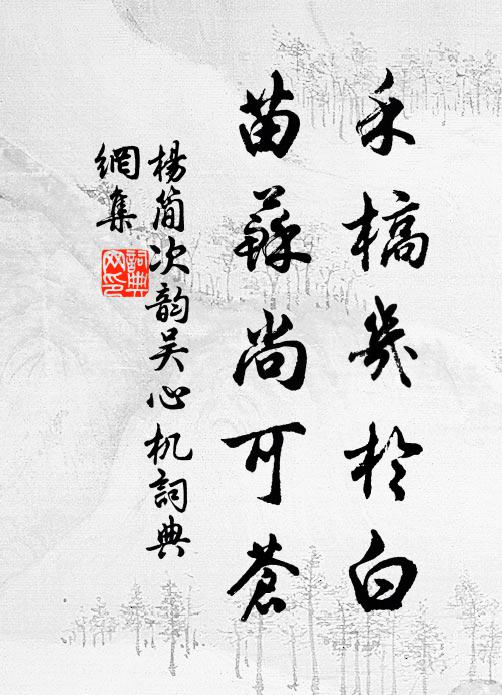 禾槁幾於白
苗蘇尚可蒼
楊簡次韵吴心机詞典
網集
詞典
网印